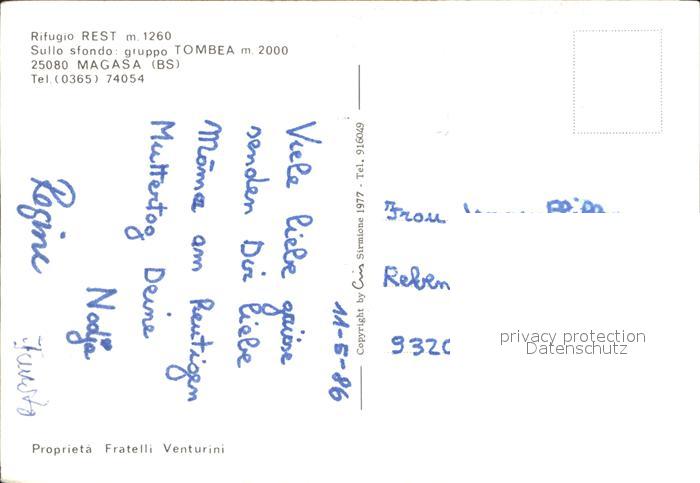 Rifugio REST m. 1260
Sullo sfondo: gruppo TOMBEA m. 2000
25080 MAGASA (BS)
Tel. (0365) 74054
11-5-86
Viele liebe grüsse
senden Dir liebe
Mäma am heutigen
Muttertag Deine
Nadja
Regine
Copyright by Cris Sirmione 1977 - Tel. 916049
Frau
Reben
932
privacy protection
Datenschutz
Proprietà Fratelli Venturini